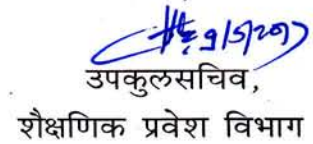 9/5/2017
उपकुलसचिव,
शैक्षणिक प्रवेश विभाग